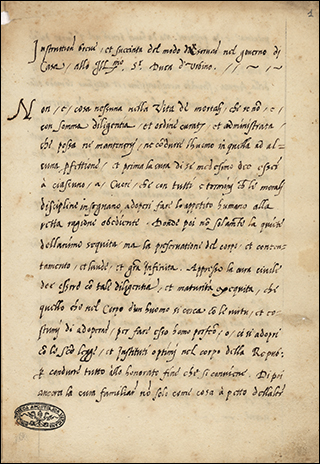 1
Instruttion breve, et succinta del modo di governar nel governo di
Casa, allo Ill.mo Sr. Duca d'Urbino.
Non, è, cosa nessuna nella Vita de mortali, che se nõ, è,
con somma diligentia, et ordine curata, et administrata,
che possa ne mantenersi, ne condure l'huomo in quella ad al-
cuna pfettione, et prima la cura di se medesimo dee esser
à ciascuno, a, Cuore, che con tutti e termini che le morali
discipline insegnano, adoperi fare lo appetito humano alla
retta ragione obediente. Donde poi nõ solamte la quiete
dell'animo seguita, ma la preservatione del corpo, et conten-
tamento, et laude, et gra infinita. Appresso la cura civile
dee essere cõ tale diligentia, et maturità exequita, che
quello che nel Corpo d'un huomo si cerca cõ le virtu, et co-
stumi di adoperar, per fare esso homo perfeto, o, ci si adopri
cõ le leggi, et Instituti optimi nel corpo della Repub.
condurre tutto allo honorato fine che si conviene. Di poi
ancora la cura familiar nõ solo come cosa à petto dell'altre